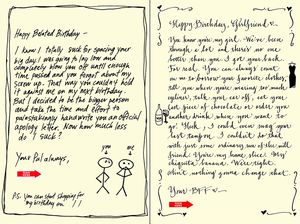 Happy Belated Birthday -
I know I totally suck for spacing your
big day! I was going to lay low and
completely blow you off until enough
time passed and you forgot about my
screw up. That way you couldn't hold
it against me on my next birthday.
But I decided to be the bigger person
and take the time and effort to
painstakingly handwrite you an official
apology letter. Now how much less
do I suck?
Your Pal always,
you
me
P.S. You can start shopping for
my birthday on
Happy Birthday, Girlfriend
You know you're my girl. We've been
through a lot and there's no one
better than you. I got your back.
For real. You can always count
on me to borrow your favorite clothes,
tell you when you're wearing too much
eyeliner, talk your ear off, eat your
last piece of chocolate or order you
another drink when you want to
go! Yeah, I could even swipe your
last tampon. I couldn't do that
with just some ordinary run of the mill
friend. You're my home slice. My
chiquita banana. We're tight.
Ain't nothing gonna change that.
Your BFF